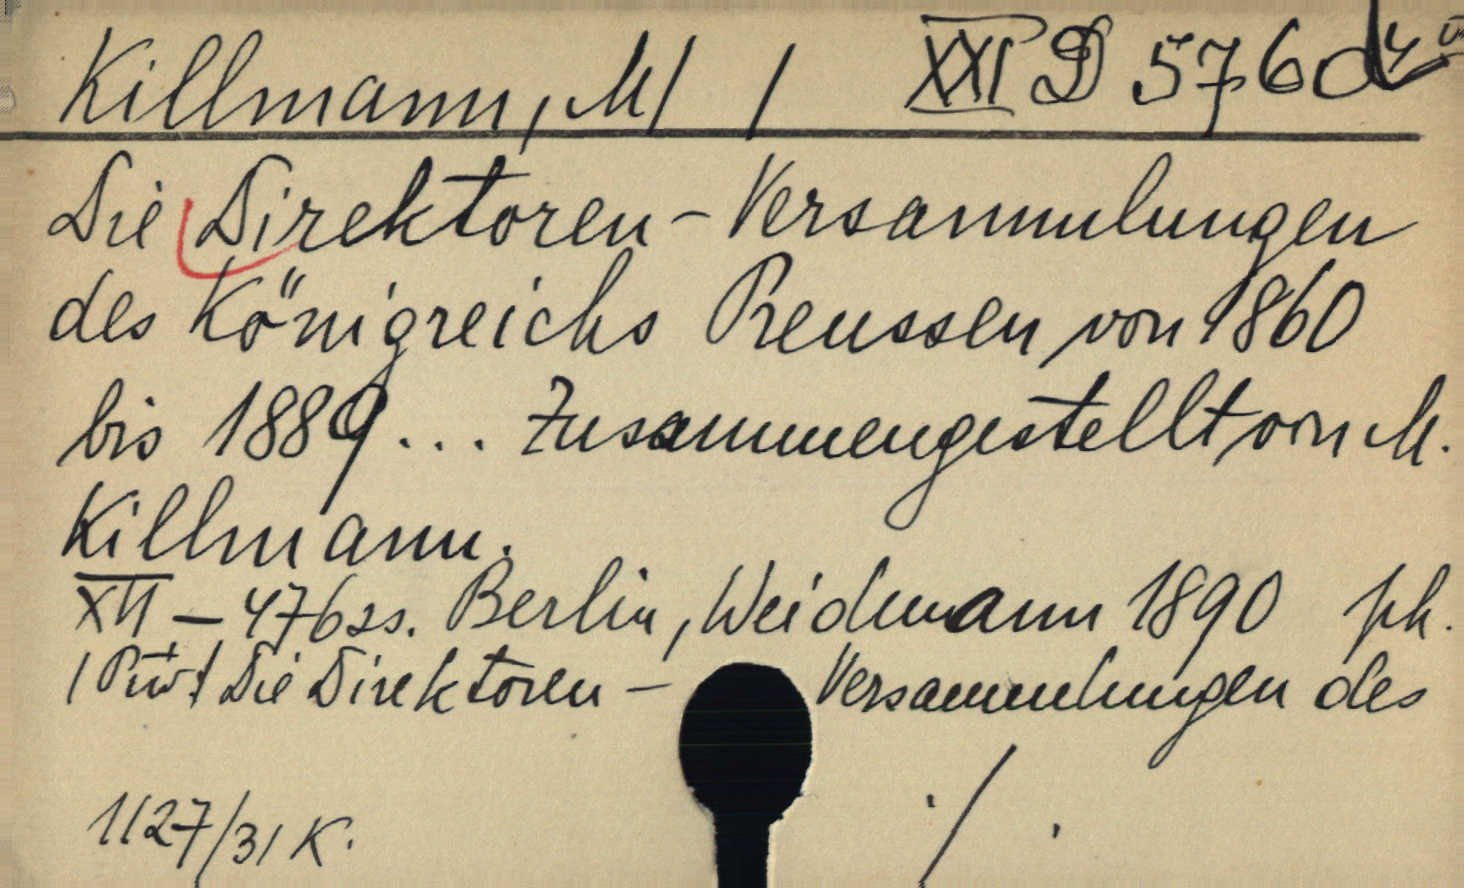 Killmann, M/ / XXI D 576 d
Die Direktoren-Versammlungen
des Königreichs Preussen von 1860
bis 1889... Zusammengestellt von M.
Killmann.
XII - 476 ss. Berlin, Weidmann 1890
Die Direktoren - Versammlungen des
./.
1127/31 K.